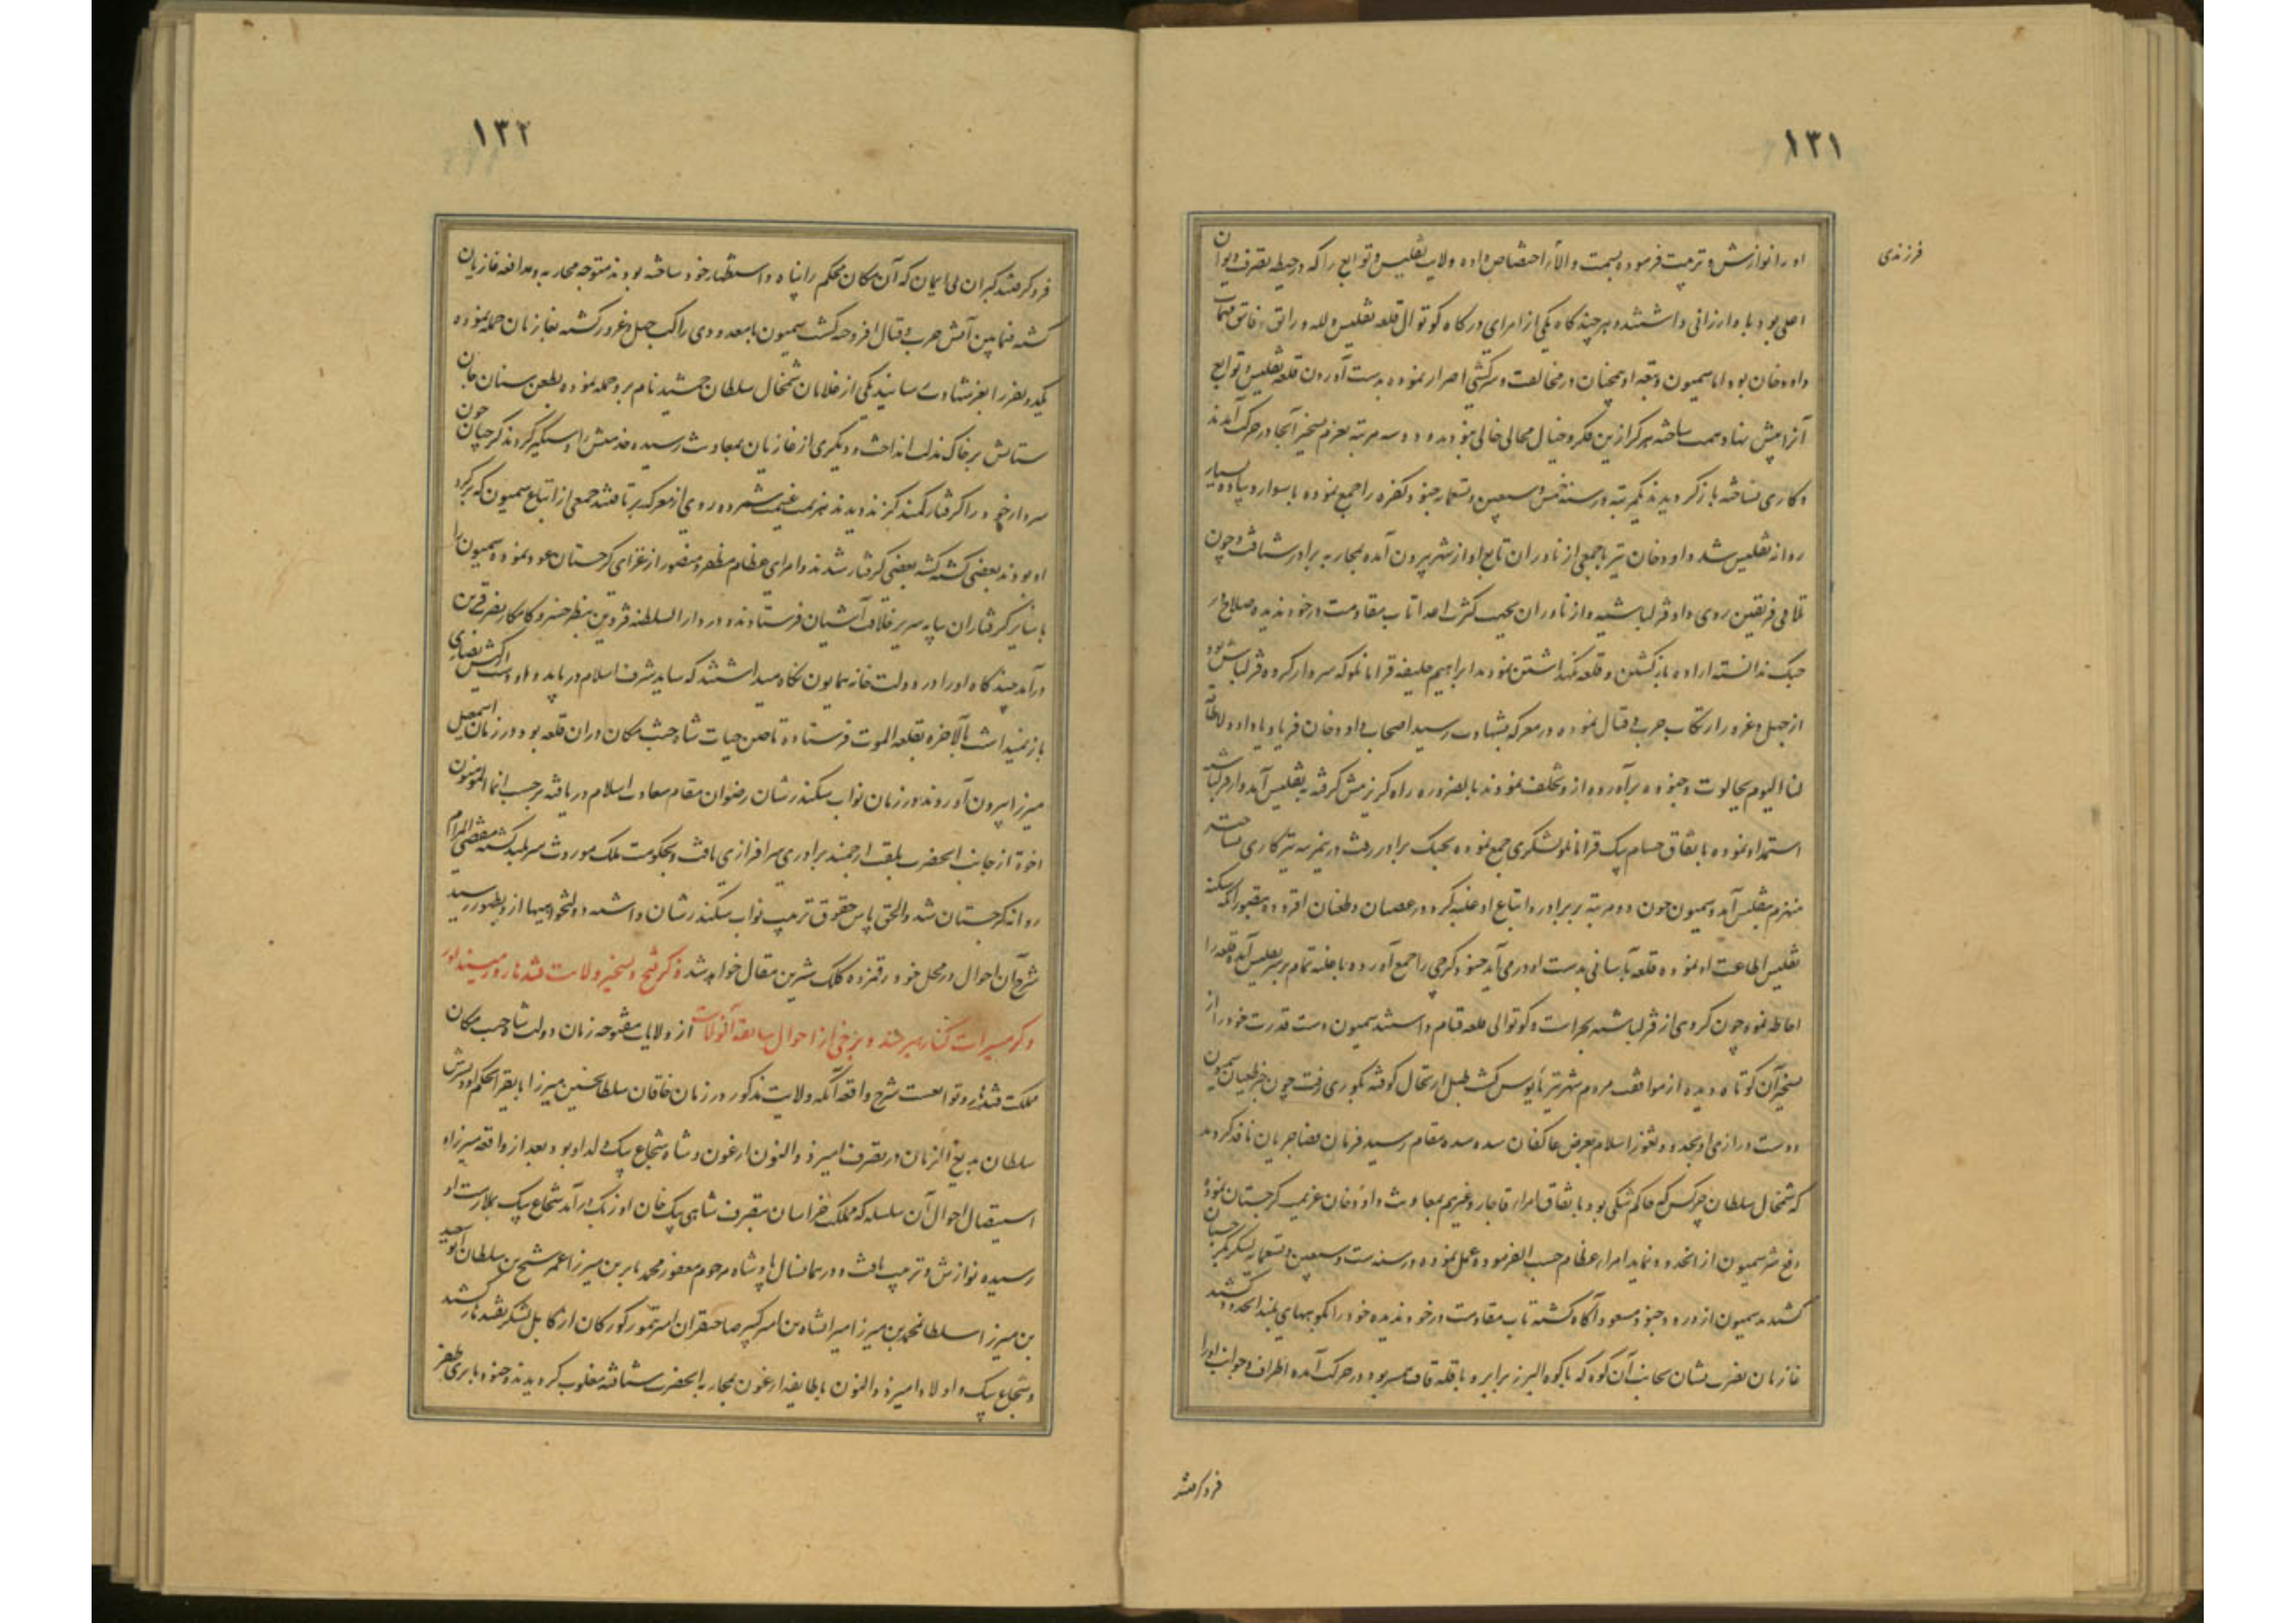 ١٣١
فرزندی
او را نوازش و تربیت فرموده بسمت والا اختصاص داده ولایت تفلیس و توابع را که در حیطه تصرف دیوان
اصلی بود باو ارزانی داشتند و هر چند گاه یکی از امرای درگاه کوتوال قلعه تفلیس و لله و راتق و فاتق مهمات
داودخان بود اما سمیون و تبعه او همچنان در مخالفت و سرکشی اصرار نموده بدست آوردن قلعه تفلیس و توابع
آنرا پیش نهاد همت ساخته هرگز ازین فکر و خیال محالی خالی نبودند و دو سه مرتبه بعزم تسخیر آنجا در حرکت آمدند
و کاری نساخته باز گردیدند یکمرتبه در سنه خمس و سبعین و تسعمایه جنود کفره را جمع نموده با سوار و پیاده بسیار
روانه تفلیس شد داودخان نیز با جمعی از ناوران تابع او از شهر بیرون آمده بمحاربه برادر شتافت و چون
تلاقی فریقین روی داد قزلباشیه و ازناوران بجهت کثرت اعدا تاب مقاومت در خود ندیده صلاح در
جنگ ندانسته اراده بازگشتن و قلعه نگهداشتن نمودند ابراهیم خلیفه قرامانلو که سردار گروه قزلباش بود
از جهل و غرور ارتکاب حرب و قتال نموده در معرکه بشهادت رسید اصحاب داودخان فریاد یا داود لاطاقة
لنا الیوم بجالوت و جنوده برآورده از و تخلف نمودند بالضروره راه گریز پیش گرفته بتفلیس آمد و از قزلباش
استمداد نموده باتفاق حسام بیک قرامانلو لشکری جمع نموده بجنگ برادر رفت درین مرتبه نیز کاری نساخته
منهزم بتفلیس آمد و سمیون چون دو مرتبه بر برادر و اتباع او غلبه کرد در عصیان و طغیان افزوده بتصور آنکه سکنه
تفلیس اطاعت او نموده قلعه بآسانی بدست او در می آید جنود گرجی را جمع آورده با غلبه تمام بر سر تفلیس آمد و قلعه را
احاطه نمود چون گروهی از قزلباشیه بحراست و کوتوالی قلعه قیام داشتند سمیون دست قدرت خود را از
تسخیر آن کوتاه دیده از موافقت مردم شهر نیز مایوس گشت طبل ارتحال کوفته بگوری رفت چون خبر طغیان سمیون
و دست درازی او بحدود و ثغور اسلام بعرض عاکفان سده سدره مقام رسید فرمان قضا جریان نافذ گردید
که شمخال سلطان چرکس که حاکم شکی بود باتفاق امراء قاجار و غیرهم بمعاونت داودخان عزیمت گرجستان نموده
دفع شر سمیون از انحدود نمایند امراء عظام حسب الفرموده عمل نموده در سنه ست و سبعین و تسعمایه لشکر بگرجستان
کشیدند سمیون از ورود جنود مسعود آگاه گشته تاب مقاومت در خود ندیده خود را بکوههای بلند انحدود کشید
غازیان نصرت نشان بجانب آن کوه که با کوه البرز برابر و با قله قاف همسر بود در حرکت آمده اطراف و جوانب او را
فروگرفتند
١٣٢
فروگرفتند گبران بی ایمان که آن مکان محکم را پناه و استظهار خود ساخته بودند متوجه محاربه و مدافعه غازیان
گشته فیمابین آتش حرب و قتال افروخته گشت سمیون با معدودی راکب جهل و غرور گشته بغازیان حمله نموده
یکدو نفر را بعز شهادت رسانید یکی از غلامان شمخال سلطان جمشید نام برو حمله نموده بطعن سنان جان
ستانش بر خاک مذلت انداخت و دیگری از غازیان بمعاونت رسیده خدمتش را دستگیر کردند گرجیان چون
سردار خود را گرفتار کمند گزند دیدند هزیمت غنیمت شمرده روی از معرکه برتافتند جمعی از اتباع سمیون که بر گرد
او بودند بعضی کشته گشته بعضی گرفتار شدند و امرای عظام مظفر و منصور از غزای گرجستان عود نموده سمیون را
با سایر گرفتاران بپایه سریر خلافت آشیان فرستادند و در دارالسلطنه قزوین بنظر خسرو کامکار نصرت قرین
درآمد چند گاه او را در دولت خانه همایون نگاه میداشتند که شاید شرف اسلام دریابد و او دست از کیش نصاری
باز نمیداشت بالاخره بقلعه الموت فرستاده تا حین حیات شاه جنت مکان در ان قلعه بود و در زمان اسمعیل
میرزا بیرون آوردند و در زمان نواب سکندرشان رضوان مقام سعادت اسلام دریافته برحسب انما المومنون
اخوة از جانب انحضرت بلقب ارجمند برادری سرافرازی یافت و بحکومت ملک موروث سربلند گشته مقضی المرام
روانه گرجستان شد و الحق پاس حقوق تربیت نواب سکندرشان داشته دولتخواهیها از و بظهور رسید
شرح آن احوال در محل خود رقمزده کلک شیرین مقال خواهد شد ذکر فتح و تسخیر ولایت قندهار و زمینداور
و گرمسیرات کنار هیرمند و برخی از احوال سابقه آنولایات از ولایات مفتوحه زمان دولت شاه جنت مکان
مملکت قندهار و توابعست شرح واقعه آنکه ولایت مذکور در زمان خاقان سلطان حسین میرزا بایقرا بحکم او و پسرش
سلطان بدیع الزمان در تصرف امیر ذوالنون ارغون و شاه شجاع بیک ولد او بود بعد از واقعه میرزا و
استیصال احوال آن سلسله که مملکت خراسان بتصرف شاهی بیک خان اوزبک درآمد شجاع بیک بملازمت او
رسیده نوازش و تربیت یافت و در همانسال پادشاه مرحوم مغفور محمد بابر بن میرزا عمر شیخ بن سلطان ابوسعید
بن میرزا سلطان محمد بن میرزا میرانشاه بن امیر کبیر صاحبقران امیر تیمور گورکان از کابل لشکر بقندهار کشید
و شجاع بیک و اولاد امیر ذوالنون با طایفه ارغون بمحاربه انحضرت شتافته مغلوب گردیدند و جنود بابری ظفر